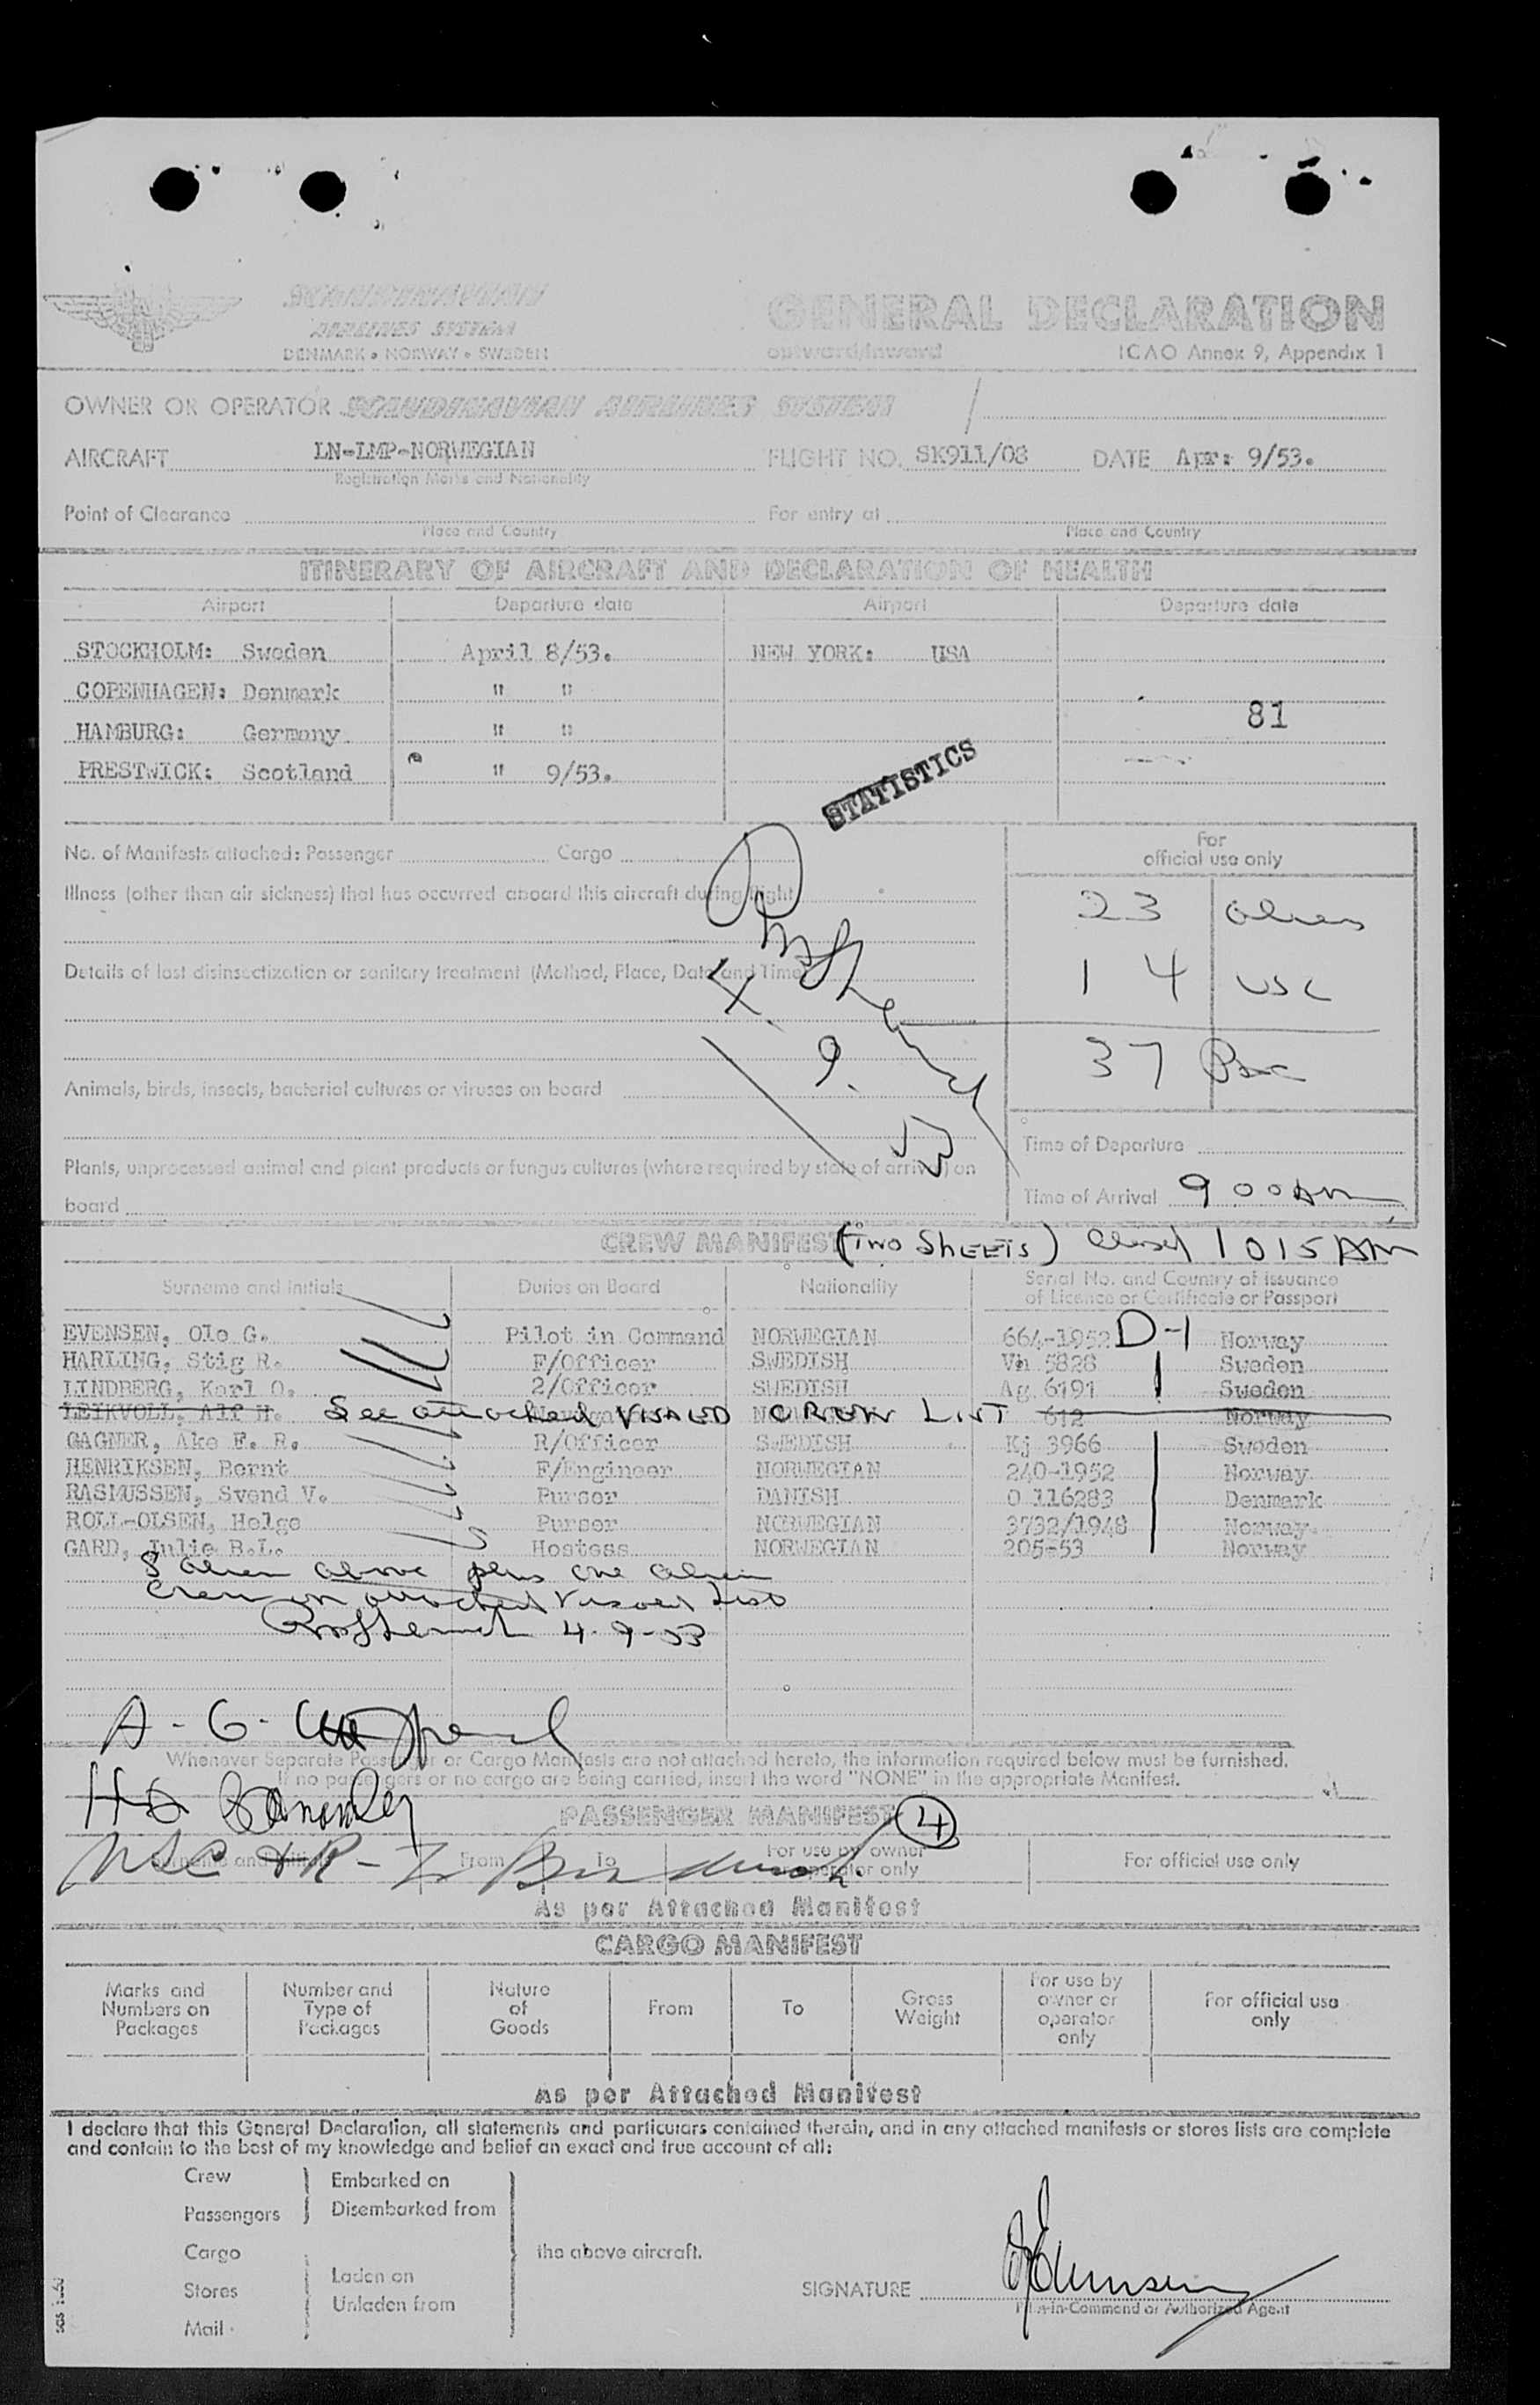 SCANDINAVIAN
AIRLINES SYSTEM
DENMARK • NORWAY • SWEDEN
GENERAL DECLARATION
outward/inward
ICAO Annex 9, Appendix 1
OWNER OR OPERATOR SCANDINAVIAN AIRLINES SYSTEM
AIRCRAFT LN-LMP-NORWEGIAN FLIGHT NO. SK911/08 DATE Apr: 9/53.
Registration Marks and Nationality
Point of Clearance For entry at
Place and Country Place and Country
ITINERARY OF AIRCRAFT AND DECLARATION OF HEALTH
Airport Departure date Airport Departure date
STOCKHOLM: Sweden April 8/53. NEW YORK: USA
COPENHAGEN: Denmark " "
81
HAMBURG: Germany " "
PRESTWICK: Scotland " 9/53.
STATISTICS
No. of Manifests attached: Passenger Cargo
For
official use only
Illness (other than air sickness) that has occurred aboard this aircraft during flight
23 aliens
Details of last disinsectization or sanitary treatment (Method, Place, Date and Time)
14 USC
4. 9. 53
37
Animals, birds, insects, bacterial cultures or viruses on board
Time of Departure
Plants, unprocessed animal and plant products or fungus cultures (where required by state of arrival) on
board
Time of Arrival 9 00 AM
CREW MANIFEST (TWO SHEETS) Closed 1015 AM
Surname and Initials Duties on Board Nationality Serial No. and Country of Issuance
of Licence or Certificate or Passport
EVENSEN, Ole G. Pilot in Command NORWEGIAN 664-1952 D-1 Norway
HARLING, Stig R. F/Officer SWEDISH Vh 5828 Sweden
LINDBERG, Karl O. 2/Officer SWEDISH Ag 6191 Sweden
LEIKVOLL, Alf H. See attached VISAED CREW LIST 612 Norway
GAGNER, Ake F. R. R/Officer SWEDISH Kj 3966 Sweden
HENRIKSEN, Bernt F/Engineer NORWEGIAN 240-1952 Norway
RASMUSSEN, Svend V. Purser DANISH O 116283 Denmark
ROLL-OLSEN, Helge Purser NORWEGIAN 3732/1948 Norway
GARD, Julie B.L. Hostess NORWEGIAN 205-53 Norway
8 alien above plus one alien
crew on attached Visaed List
4-9-53
A-G-
Whenever Separate Passenger or Cargo Manifests are not attached hereto, the information required below must be furnished.
If no passengers or no cargo are being carried, insert the word "NONE" in the appropriate Manifest.
PASSENGER MANIFEST 4
Surname and Initials From To For use by owner
or operator only
For official use only
As per Attached Manifest
CARGO MANIFEST
Marks and
Numbers on
Packages
Number and
Type of
Packages
Nature
of
Goods
From
To
Gross
Weight
For use by
owner or
operator
only
For official use
only
As per Attached Manifest
I declare that this General Declaration, all statements and particulars contained therein, and in any attached manifests or stores lists are complete
and contain to the best of my knowledge and belief an exact and true account of all:
Crew Embarked on
Passengers Disembarked from
Cargo the above aircraft.
Stores Laden on
Unladen from
Mail
SIGNATURE
Pilot-in-Command or Authorized Agent